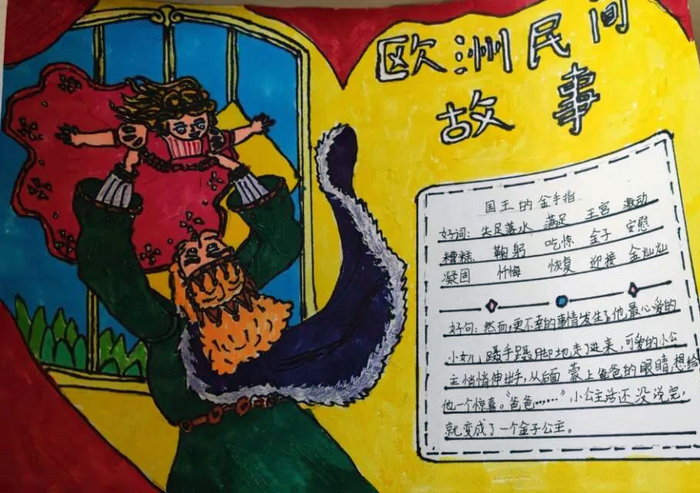 欧洲民间
故事
国王的金手指
好词：失足落水 满足 王宫 激动
糟糕 鞠躬 吃惊 金子 安慰
凝固 忏悔 恢复 迎接 金灿灿
好句：然而，更不幸的事情发生了，他最心爱的
小女儿蹑手蹑脚地走了进来，可爱的小公
主悄悄伸出手，从后面蒙上爸爸的眼睛，想给
他一个惊喜。“爸爸……”小公主话还没说完，
就变成了一个金子公主。